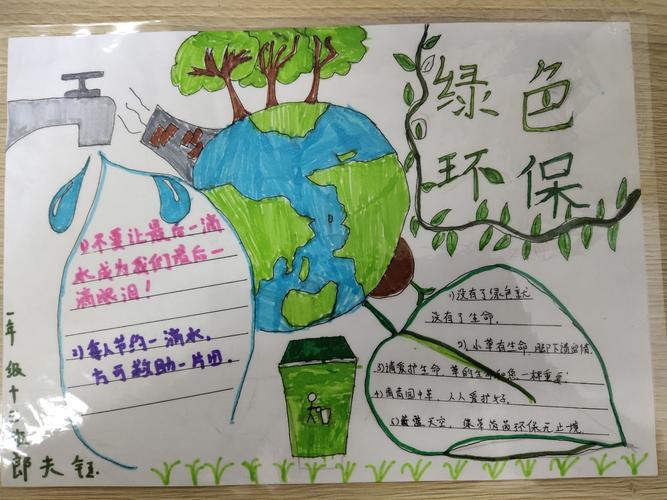 绿色
环保
1)不要让最后一滴
水成为我们最后一
滴眼泪!
2)每人节约一滴水,
方可救助一片田.
1)没有了绿色就
没有了生命.
2)小草有生命,脚下请留情.
3)请爱护生命,草的生命和您一样重要!
4)青青园中草,人人爱护好.
5)蓝蓝天空,绿草茵茵环保无止境.
一年级十三班
郎夫钰